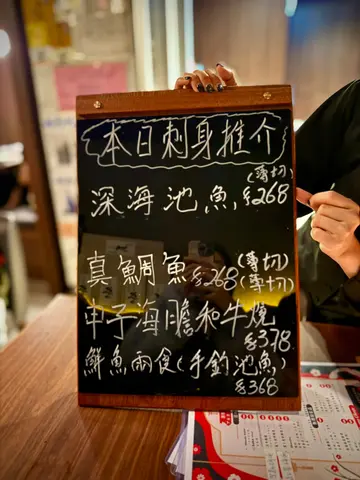 本日刺身推介
(薄切)
深海池魚 $268
真鯛魚 $268 (薄切)
(薄切)
甲子海膽和牛燒
$378
鮮魚兩食(手釣池魚)
$368